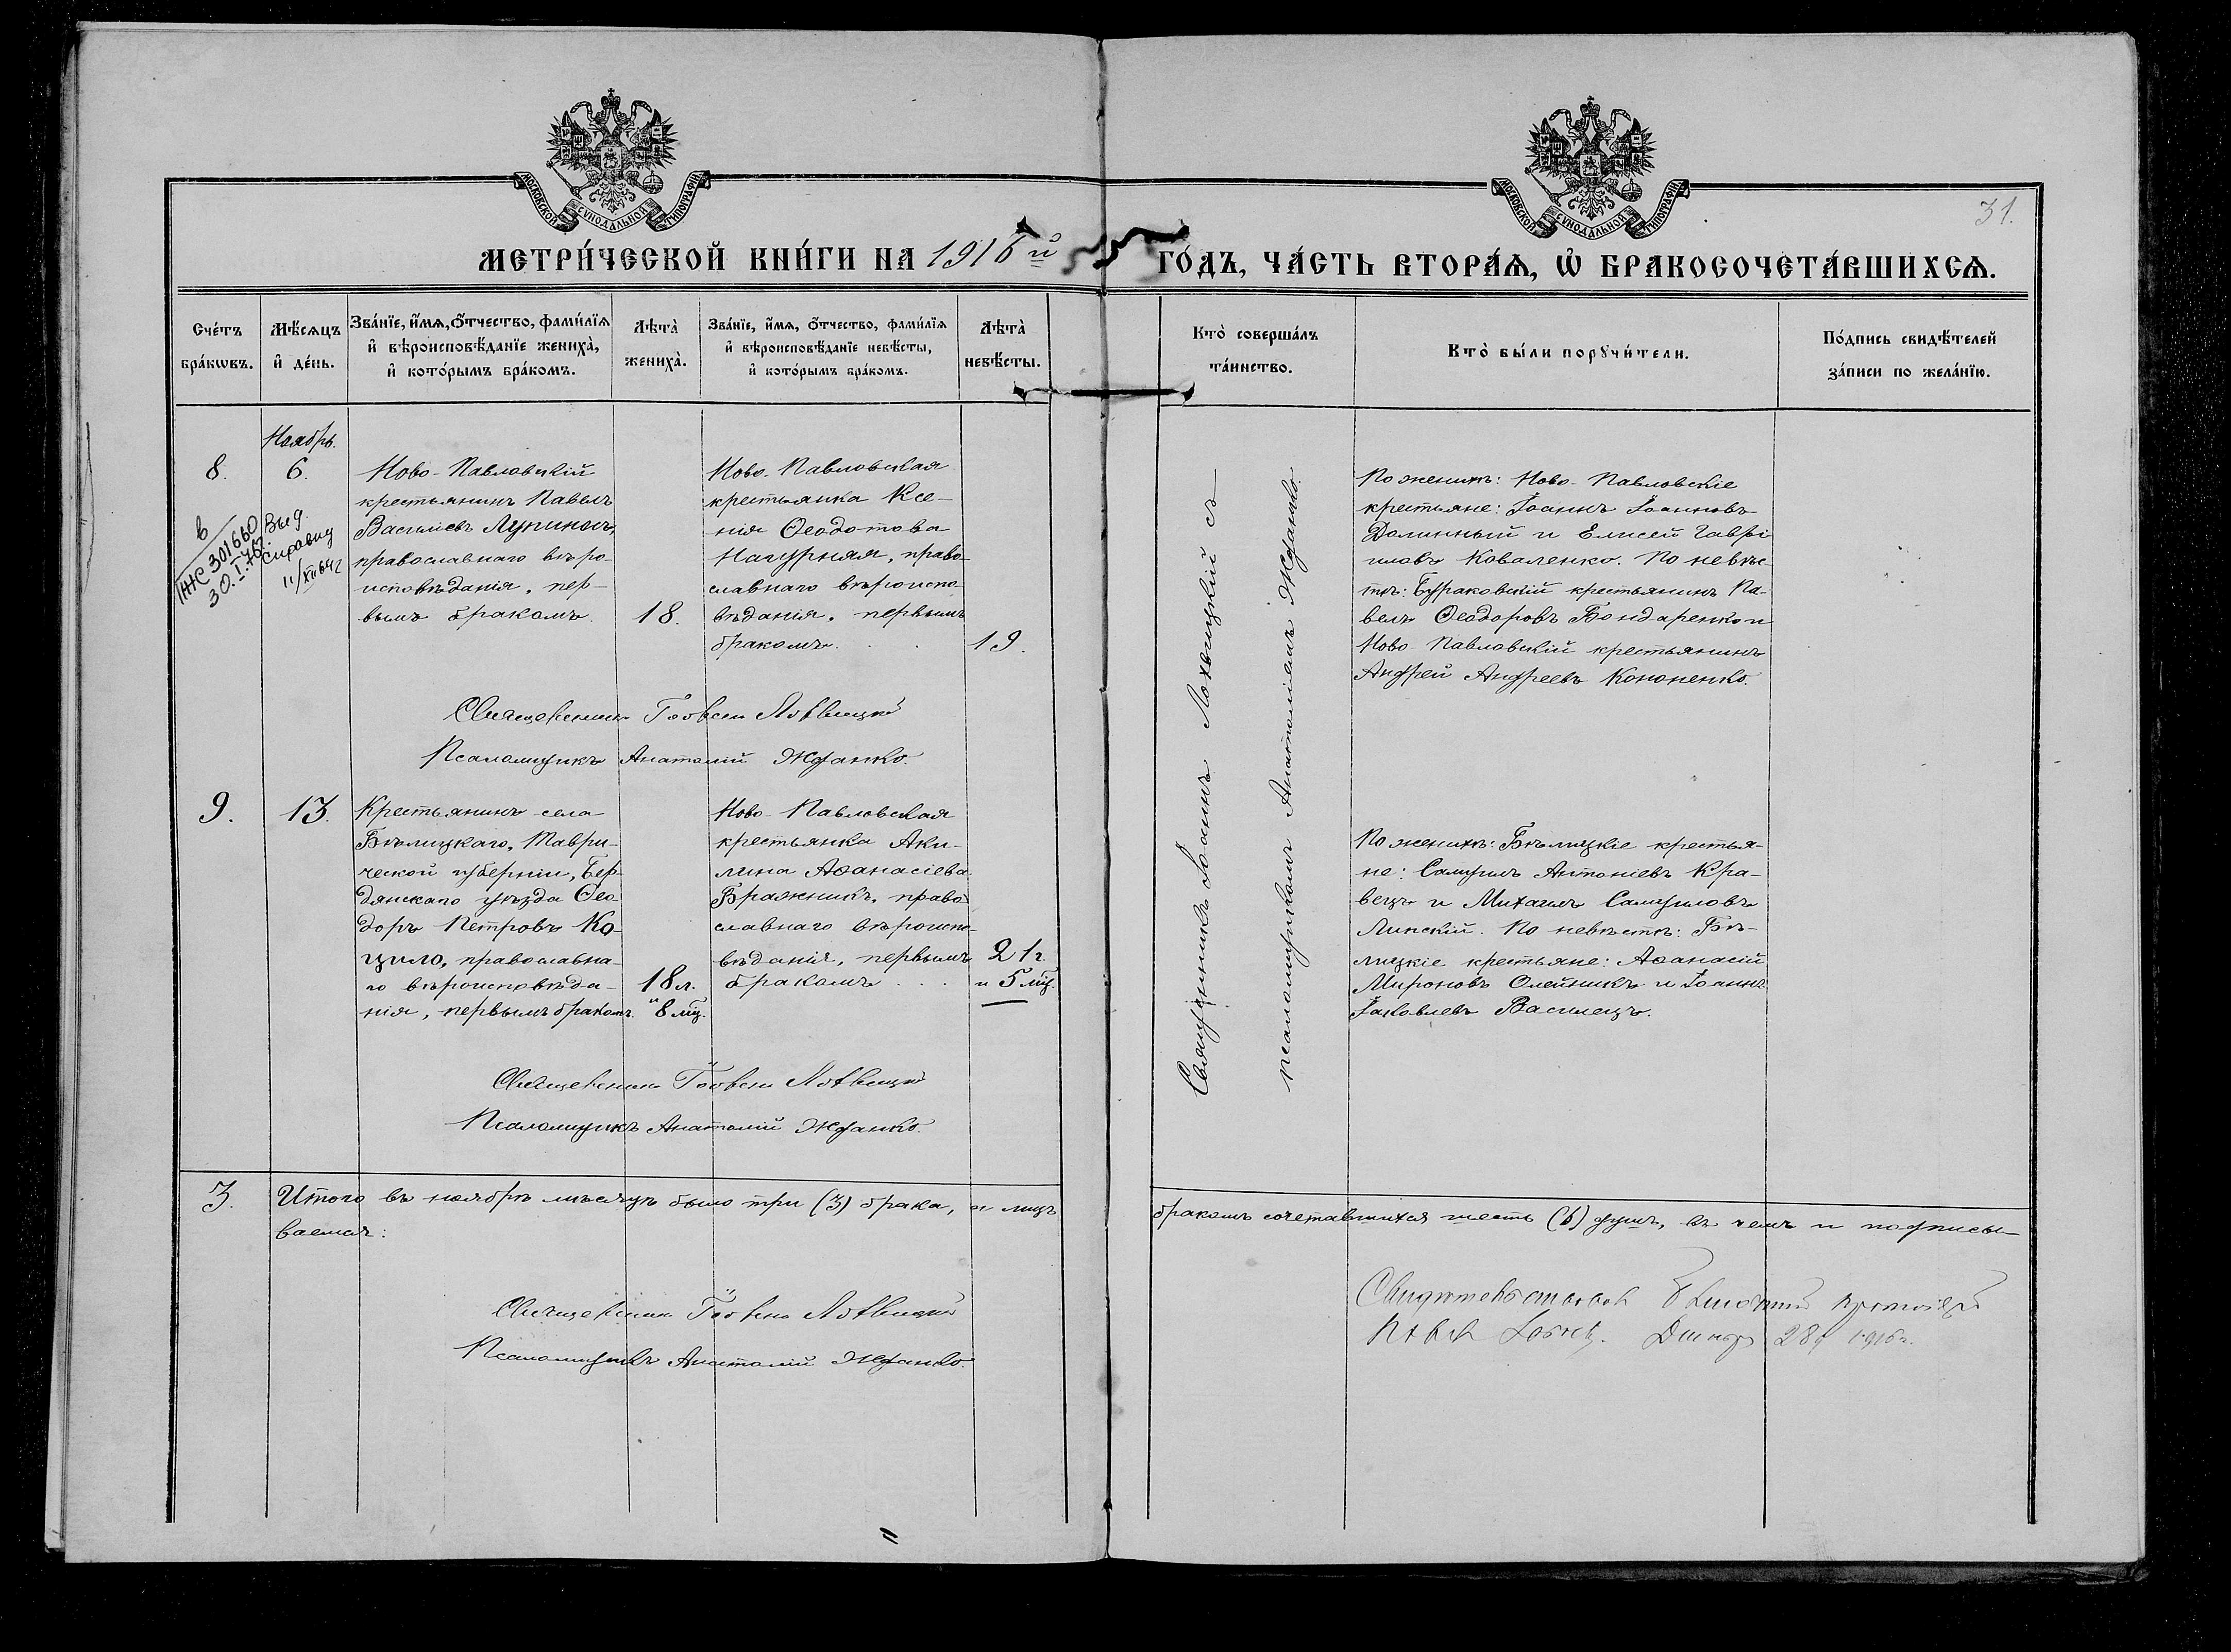 31.
МОСКОВСКОЙ СѴНОДАЛЬНОЙ ТИПОГРАФІИ
МОСКОВСКОЙ СѴНОДАЛЬНОЙ ТИПОГРАФІИ
МЕТРИ́ЧЕСКОЙ КНИ́ГИ НА 1916й ГО́ДЪ, ЧА́СТЬ ВТОРА́Ѧ, Ѡ҆ БРАКОСОЧЕТА́ВШИХСѦ.
Сче́тъ бра́кѡвъ.
Мѣ́сѧцъ и҆ де́нь.
Зва́нїе, и҆́мѧ, ѻ҆́тчество, фами́лїѧ
и҆ вѣроисповѣ́данїе жениха̀,
и҆ кото́рымъ бра́комъ.
Лѣта̀ жениха̀.
Зва́нїе, и҆́мѧ, ѻ҆́тчество, фами́лїѧ
и҆ вѣроисповѣ́данїе невѣ́сты,
и҆ кото́рымъ бра́комъ.
Лѣта̀ невѣ́сты.
Кто̀ соверша́лъ
та́инство.
Кто̀ бы́ли порꙋчи́тели.
По́дпись свидѣ́телей
за́писи по жела́нїю.
Ноябрь.
8.
6.
Ново-Павловскій
крестьянинъ Павелъ
Василіевъ Лупиносъ,
православнаго вѣро-
исповѣданія, пер-
вымъ бракомъ.
18.
Ново-Павловская
крестьянка Ксе-
нія Ѳеодотова
Нагурная, право-
славнаго вѣроиспо-
вѣданія, первымъ
бракомъ.
19.
ІЖС 301660
30.I.76г.
Выд.
справку
11/XII 64г
Священникъ Іоаннъ Лохвицкій съ
псаломщикомъ Анатоліемъ Жданко.
По женихѣ: Ново-Павловскіе
крестьяне: Іоаннъ Іоанновъ
Долинный и Елисей Гаврі-
иловъ Коваленко. По невѣс-
тѣ: Бураковскій крестьянинъ Па-
велъ Ѳеодоровъ Бондаренко и
Ново-Павловскій крестьянинъ
Андрей Андреевъ Кононенко.
Священникъ Іоаннъ Лохвицкій
Псаломщикъ Анатолій Жданко.
9.
13.
Крестьянинъ села
Бѣлицкаго, Таври-
ческой губерніи, Бер-
дянскаго уѣзда Ѳео-
доръ Петровъ Ко-
цило, православна-
го вѣроисповѣда-
нія, первымъ бракомъ.
18 л.
и 8 мц.
Ново-Павловская
крестьянка Аки-
лина Аѳанасіева
Бражникъ, право-
славнаго вѣроиспо-
вѣданія, первымъ
бракомъ
21 г.
и 5 мц.
По женихѣ: Бѣлицкіе крестья-
не: Самуилъ Антоніевъ Кра-
вецъ и Михаилъ Самуиловъ
Липскій. По невѣстѣ: Бѣ-
лицкіе крестьяне: Аѳанасій
Мироновъ Олейникъ и Іоаннъ
Іаковлевъ Василецъ.
Священникъ Іоаннъ Лохвицкій
Псаломщикъ Анатолій Жданко.
3.
Итого въ ноябрѣ мѣсяцѣ было три (3) брака, а лицъ
бракомъ сочетавшихся шесть (6) душъ, въ чемъ и подписы-
ваемся:
Священникъ Іоаннъ Лохвицкій
Псаломщикъ Анатолій Жданко.
Свидѣтельствовалъ
28 1916 г.